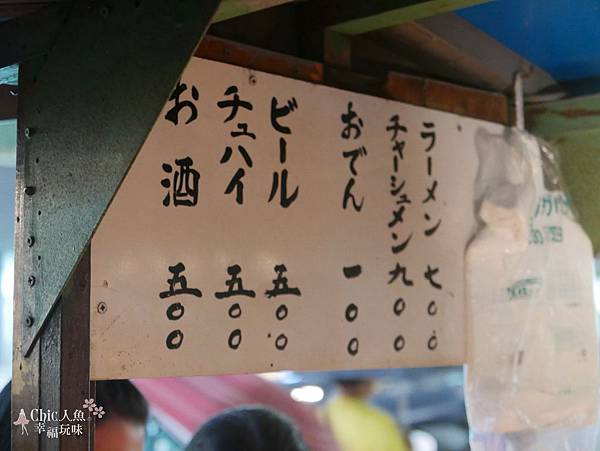 ラーメン 七〇〇
チャーシュメン 九〇〇
おでん 一〇〇
ビール 五〇〇
チュハイ 五〇〇
お酒 五〇〇
Chic人魚
幸福玩味